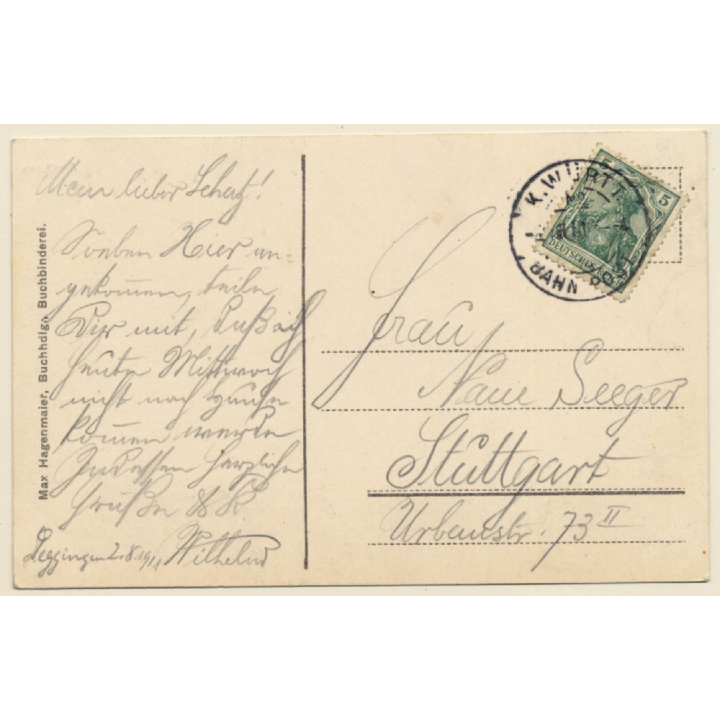 Mein lieber Schatz!
Soeben Hier an-
gekommen, teile
Dir mit, daß ich
heute Mittwoch
nicht nach Hause
kommen werde
Indessen herzliche
Grüße & K
Wilhelm
Deggingen 2.8.1911
Max Hagenmaier, Buchhdlg., Buchbinderei.
K. WÜRTT.
BAHN
5
5
DEUTSCHES
Frau
Seeger
Stuttgart
Urbanstr. 73 II